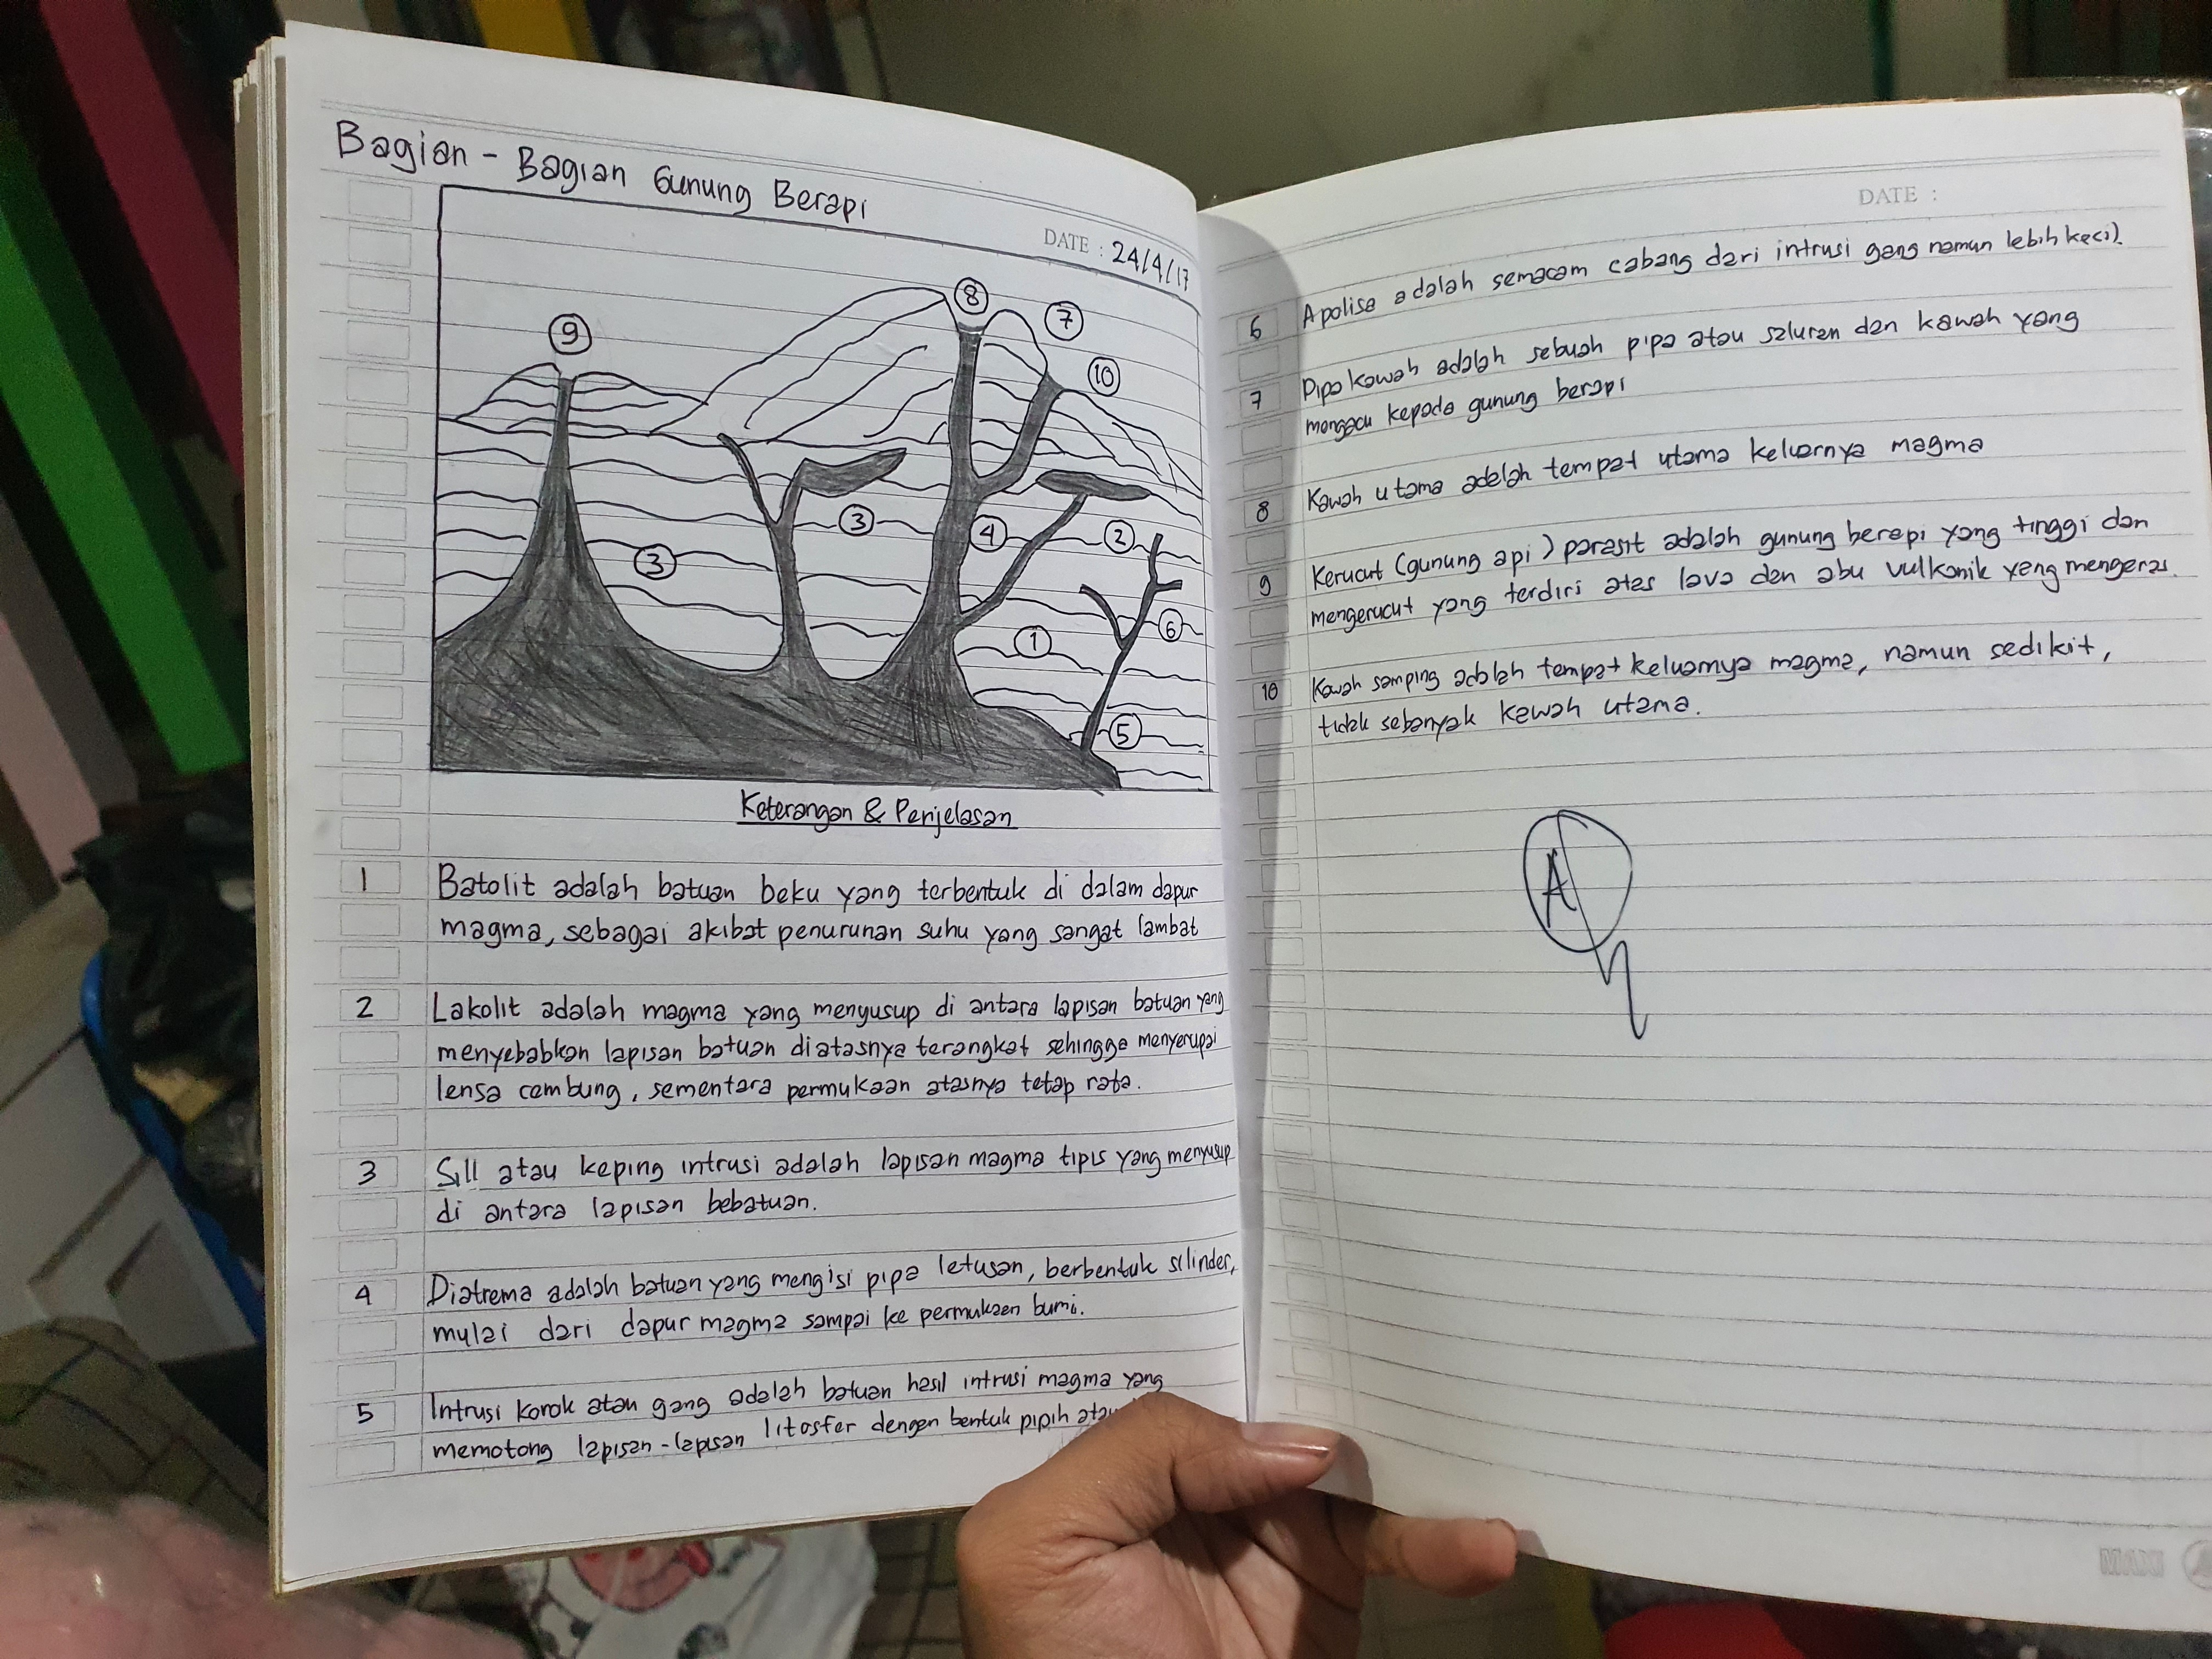 Bagian - Bagian Gunung Berapi
DATE : 24/4/17
9
8
7
10
3
4
2
3
1
6
5
Keterangan & Penjelasan
1 Batolit adalah batuan beku yang terbentuk di dalam dapur
magma, sebagai akibat penurunan suhu yang sangat lambat
2 Lakolit adalah magma yang menyusup di antara lapisan batuan yang
menyebabkan lapisan batuan diatasnya terangkat sehingga menyerupai
lensa cembung, sementara permukaan atasnya tetap rata.
3 Sill atau keping intrusi adalah lapisan magma tipis yang menyusup
di antara lapisan bebatuan.
4 Diatrema adalah batuan yang mengisi pipa letusan, berbentuk silinder,
mulai dari dapur magma sampai ke permukaan bumi.
5 Intrusi korok atau gang adalah batuan hasil intrusi magma yang
memotong lapisan-lapisan litosfer dengan bentuk pipih atau
DATE :
6 Apolisa adalah semacam cabang dari intrusi gang namun lebih kecil.
7 Pipa kawah adalah sebuah pipa atau saluran dan kawah yang
mengacu kepada gunung berapi
8 Kawah utama adalah tempat utama keluarnya magma
9 Kerucut (gunung api) parasit adalah gunung berapi yang tinggi dan
mengerucut yang terdiri atas lava dan abu vulkanik yang mengeras.
10 Kawah samping adalah tempat keluarnya magma, namun sedikit,
tidak sebanyak kawah utama.
A